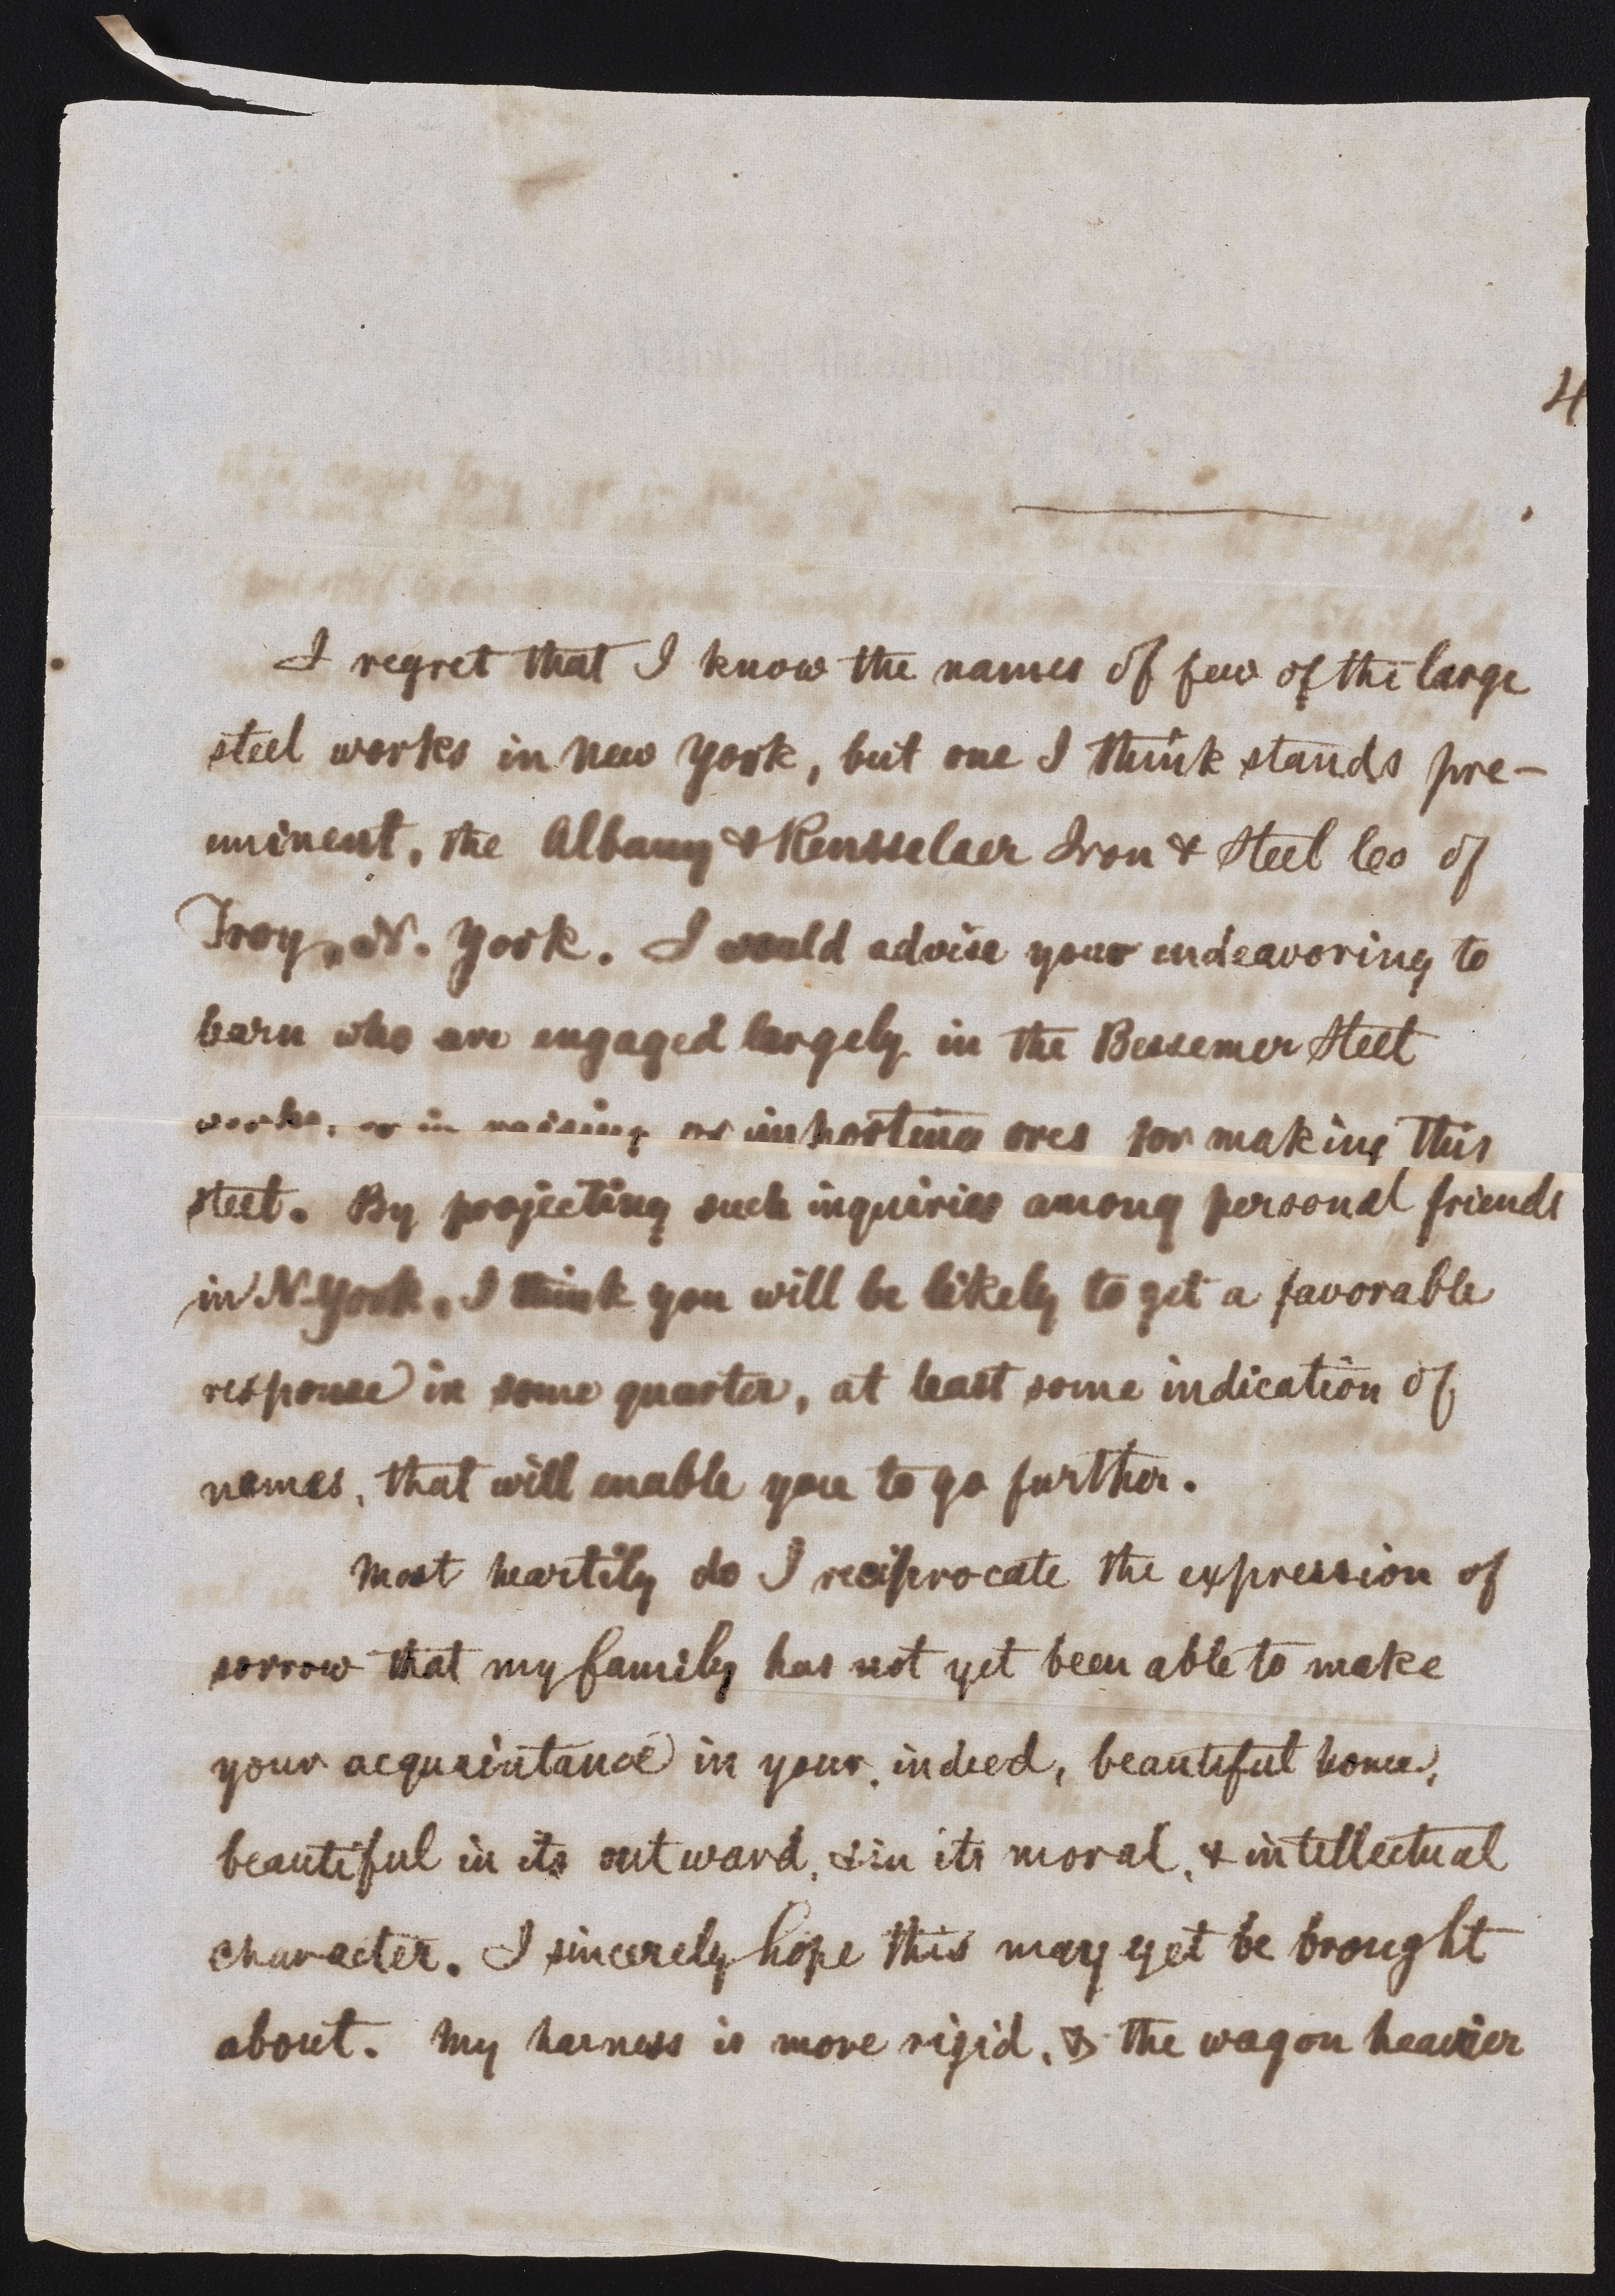 4
I regret that I know the names of few of the large
steel works in New York, but one I think stands pre-
eminent, the Albany & Rensselaer Iron & Steel Co of
Troy, N. York. I would advise your endeavoring to
learn who are engaged largely in the Bessemer Steel
works, or in raising or importing ores for making this
steel. By projecting such inquiries among personal friends
in N-York, I think you will be likely to get a favorable
response in some quarter, at least some indication of
names, that will enable you to go further.
Most heartily do I reciprocate the expression of
sorrow that my family has not yet been able to make
your acquaintance in your, indeed, beautiful home,
beautiful in its outward, & in its moral, & intellectual
character. I sincerely hope this may yet be brought
about. My harness is more rigid, & the wagon heavier